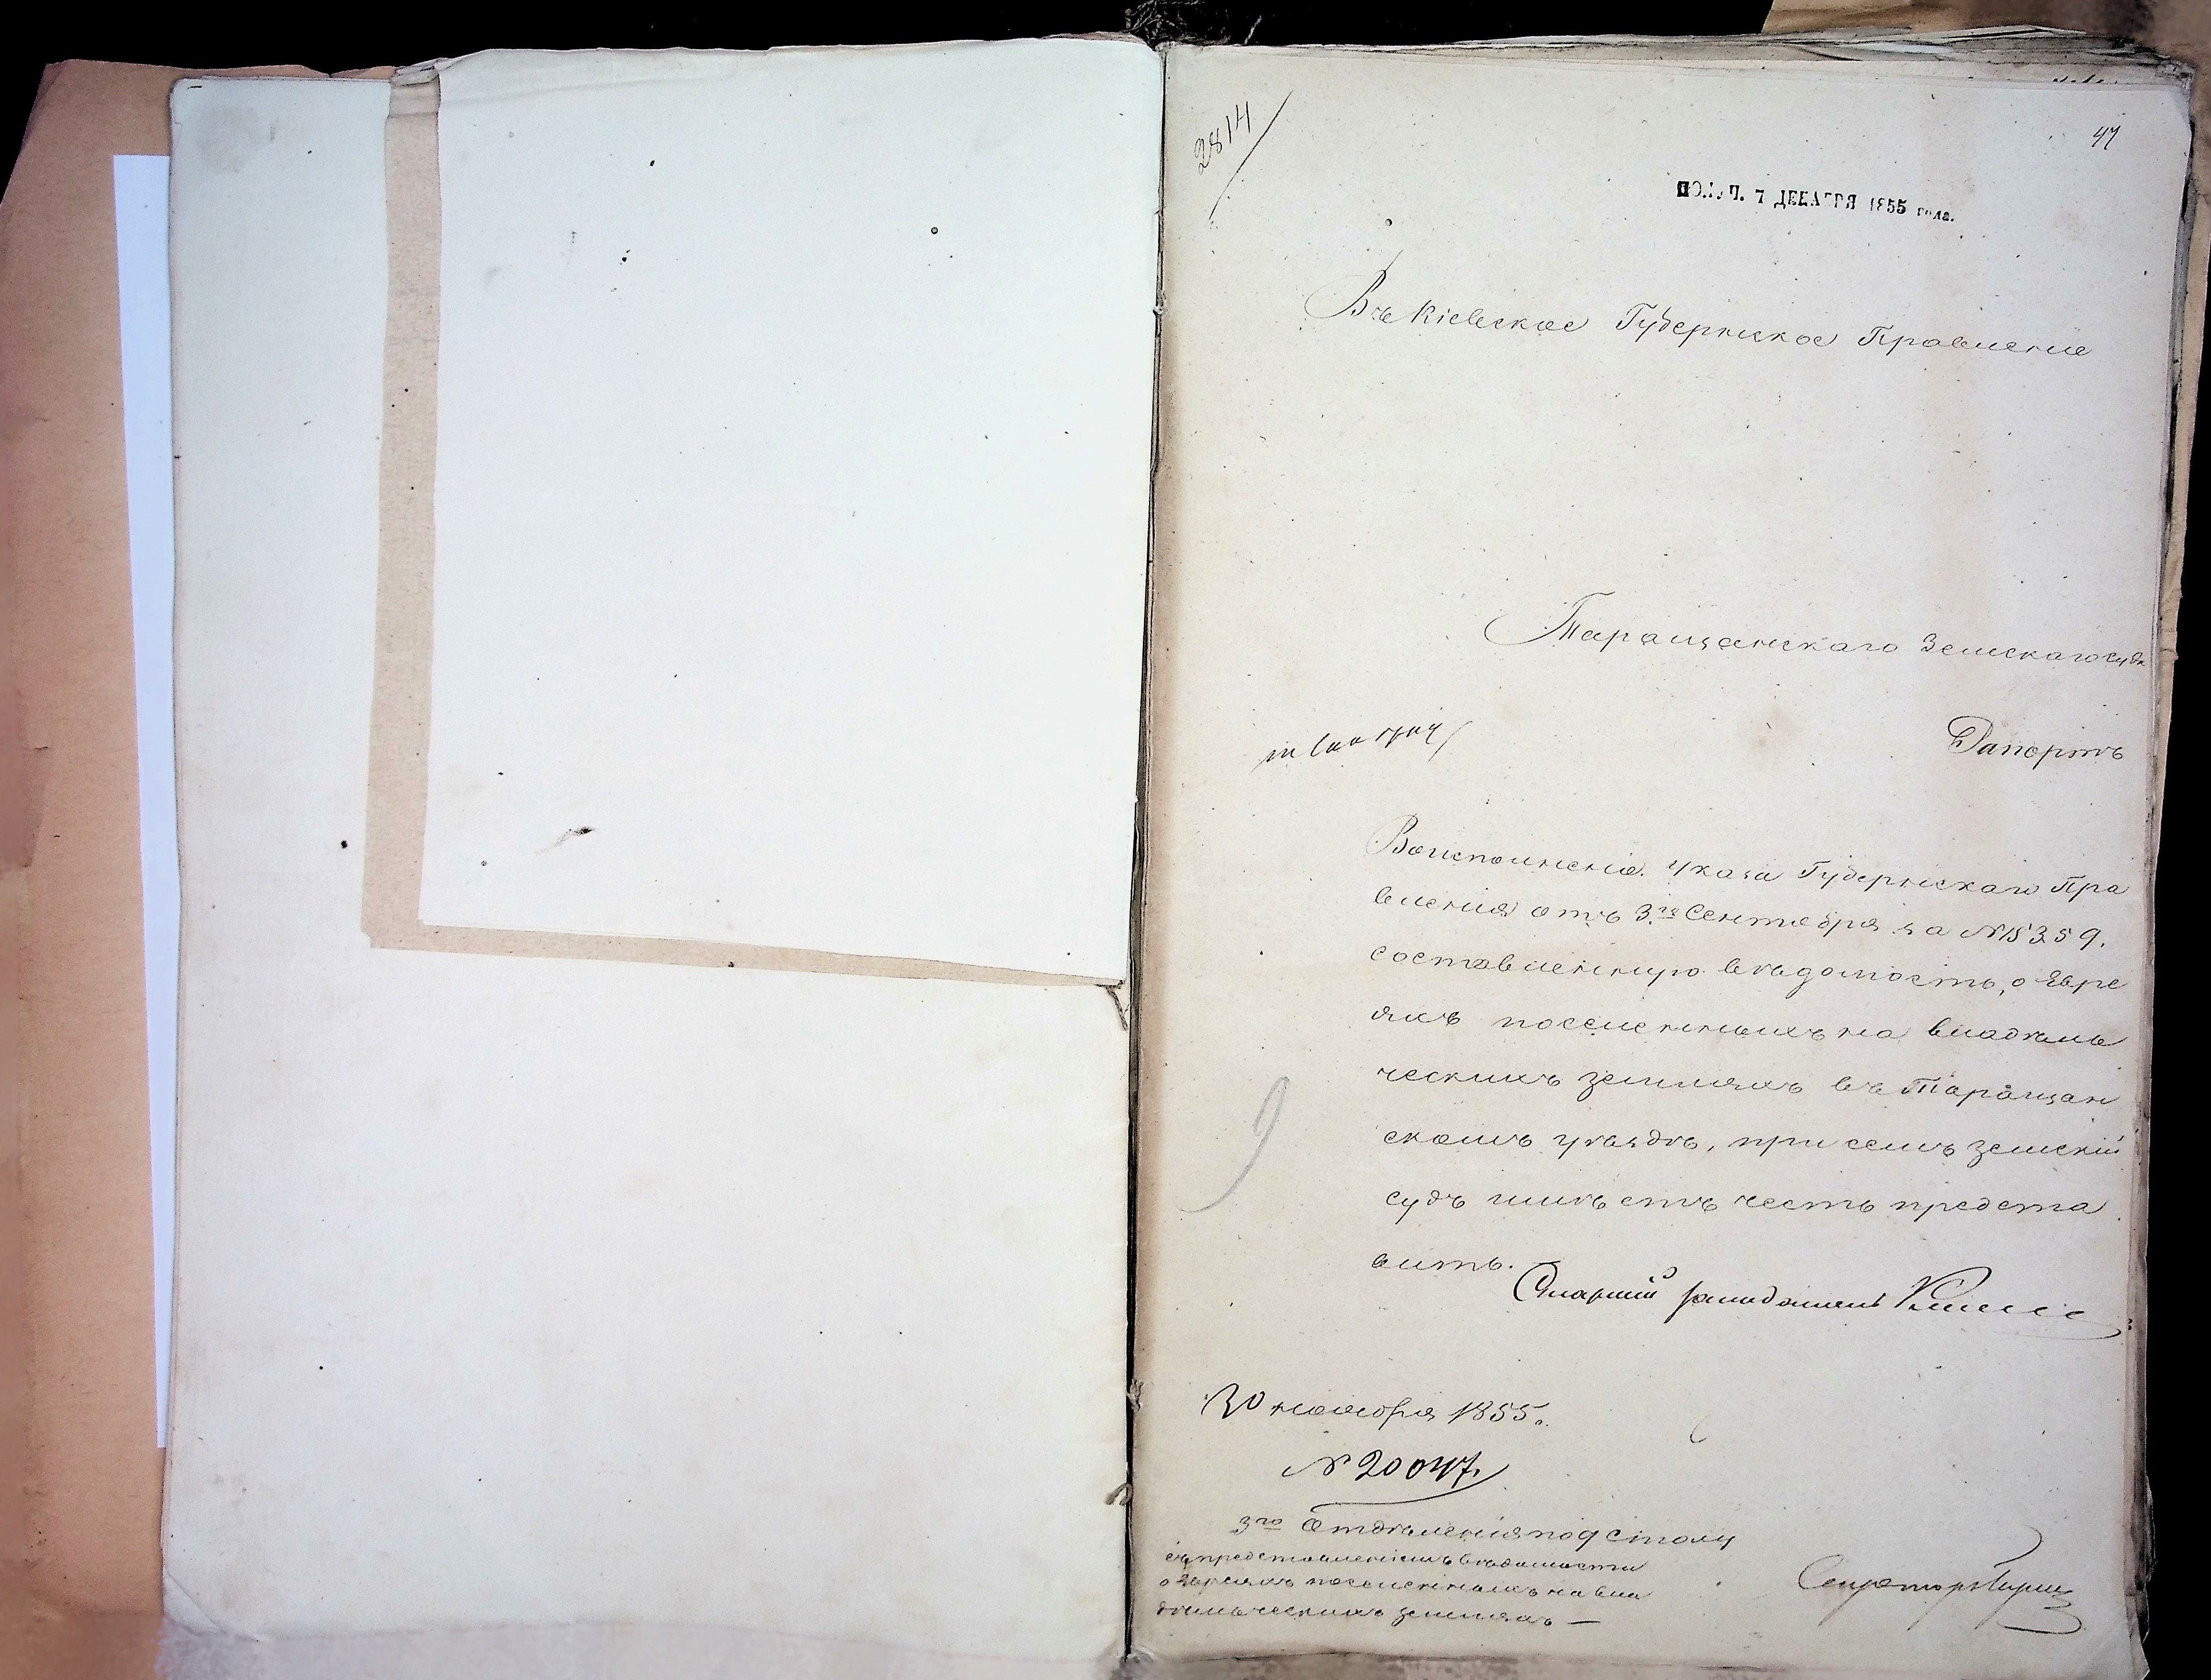 2814
47
ПОЛУЧ. 7 ДЕКАБРЯ 1855 года.
Въ Кіевское Губернское Правленіе
Таращанскаго Земскаго суда
Рапортъ
Во исполненіе указа Губернскаго Пра
вленія отъ 3.го Сентября за №15359.
составленную вѣдомость, о Евре
яхъ поселенныхъ на владѣль
ческихъ земляхъ въ Таращан
скомъ уѣздѣ, при семъ земскій
судъ имѣетъ честь предста
вить.
Старшій засѣдатель
30 ноября 1855.
№ 20047.
3го Отдѣленія по 9 столу
съ представленіемъ вѣдомости
о Евреяхъ поселенныхъ на вла
дѣльческихъ земляхъ —
Секретарь